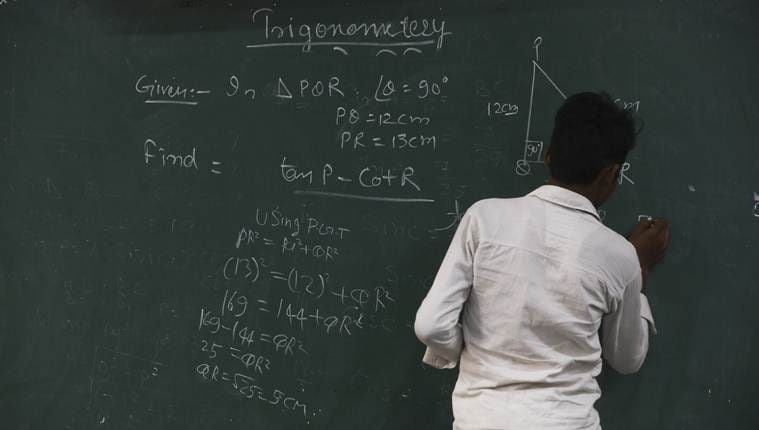 Trigonometery
Given:- In △PQR, ∠Q = 90°
PQ = 12cm
PR = 13cm
Find = tan P - Cot R
Using P.G.T
PR² = PQ² + QR²
(13)² = (12)² + QR²
169 = 144 + QR²
169 - 144 = QR²
25 = QR²
QR = √25 = 5cm.
P
12cm
cm
90°
Q
R